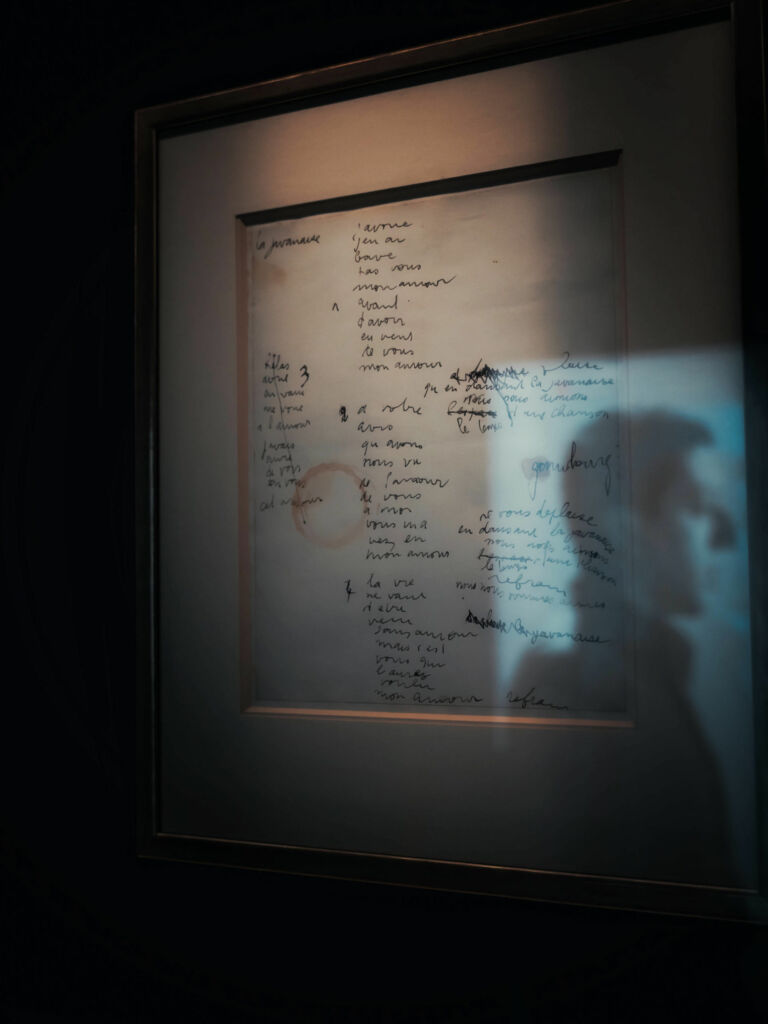 la javanaise
j'avoue
j'en ai
bavé
pas vous
mon amour
1 avant
d'avoir
eu vent
de vous
mon amour
ne vous déplaise
qu en dansant la javanaise
nous nous aimons
le temps d'une chanson
2 à votre
avis
qu'avons
nous vu
de l'amour
de vous
à moi
vous m'a
vez eu
mon amour
3 hélas
avril
en vain
me voue
à l'amour
j'avais
envie
de voir
en vous
cet amour
gainsbourg
ne vous déplaise
en dansant la javanaise
nous nous aimions
le temps d'une chanson
refrain
nous nous sommes aimés
la javanaise
4 la vie
ne vaut
d'être
vécue
sans amour
mais c'est
vous qui
l'avez
voulu
mon amour refrain